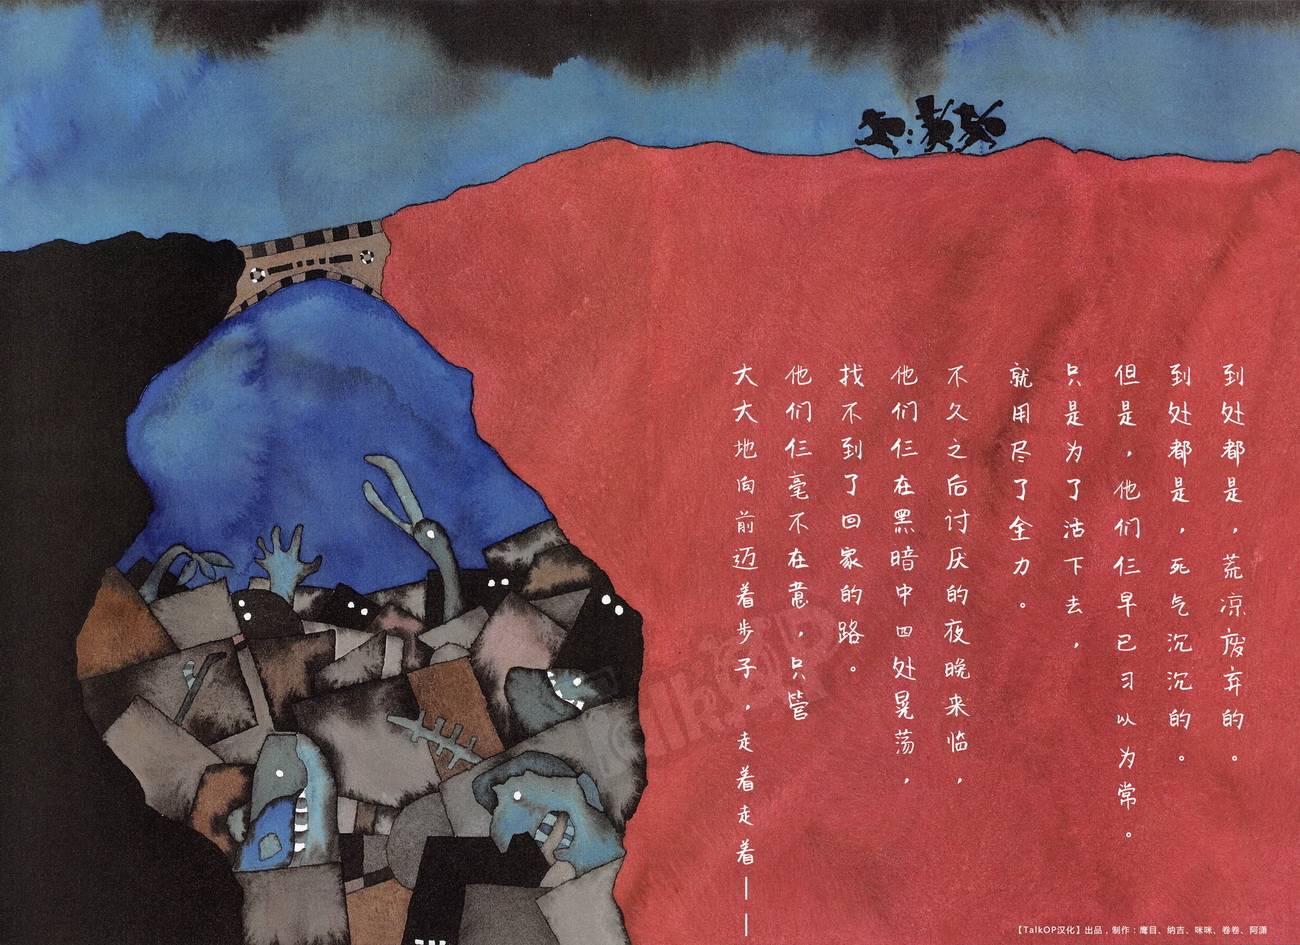 到处都是，荒凉废弃的。
到处都是，死气沉沉的。
但是，他们仨早已习以为常。
只是为了活下去，
就用尽了全力。
不久之后讨厌的夜晚来临，
他们仨在黑暗中四处晃荡，
找不到了回家的路。
他们仨毫不在意，只管
大大地向前迈着步子，走着走着——
TalkOP
【TalkOP汉化】出品，制作：鹰目、纳吉、咪咪、卷卷、阿潇